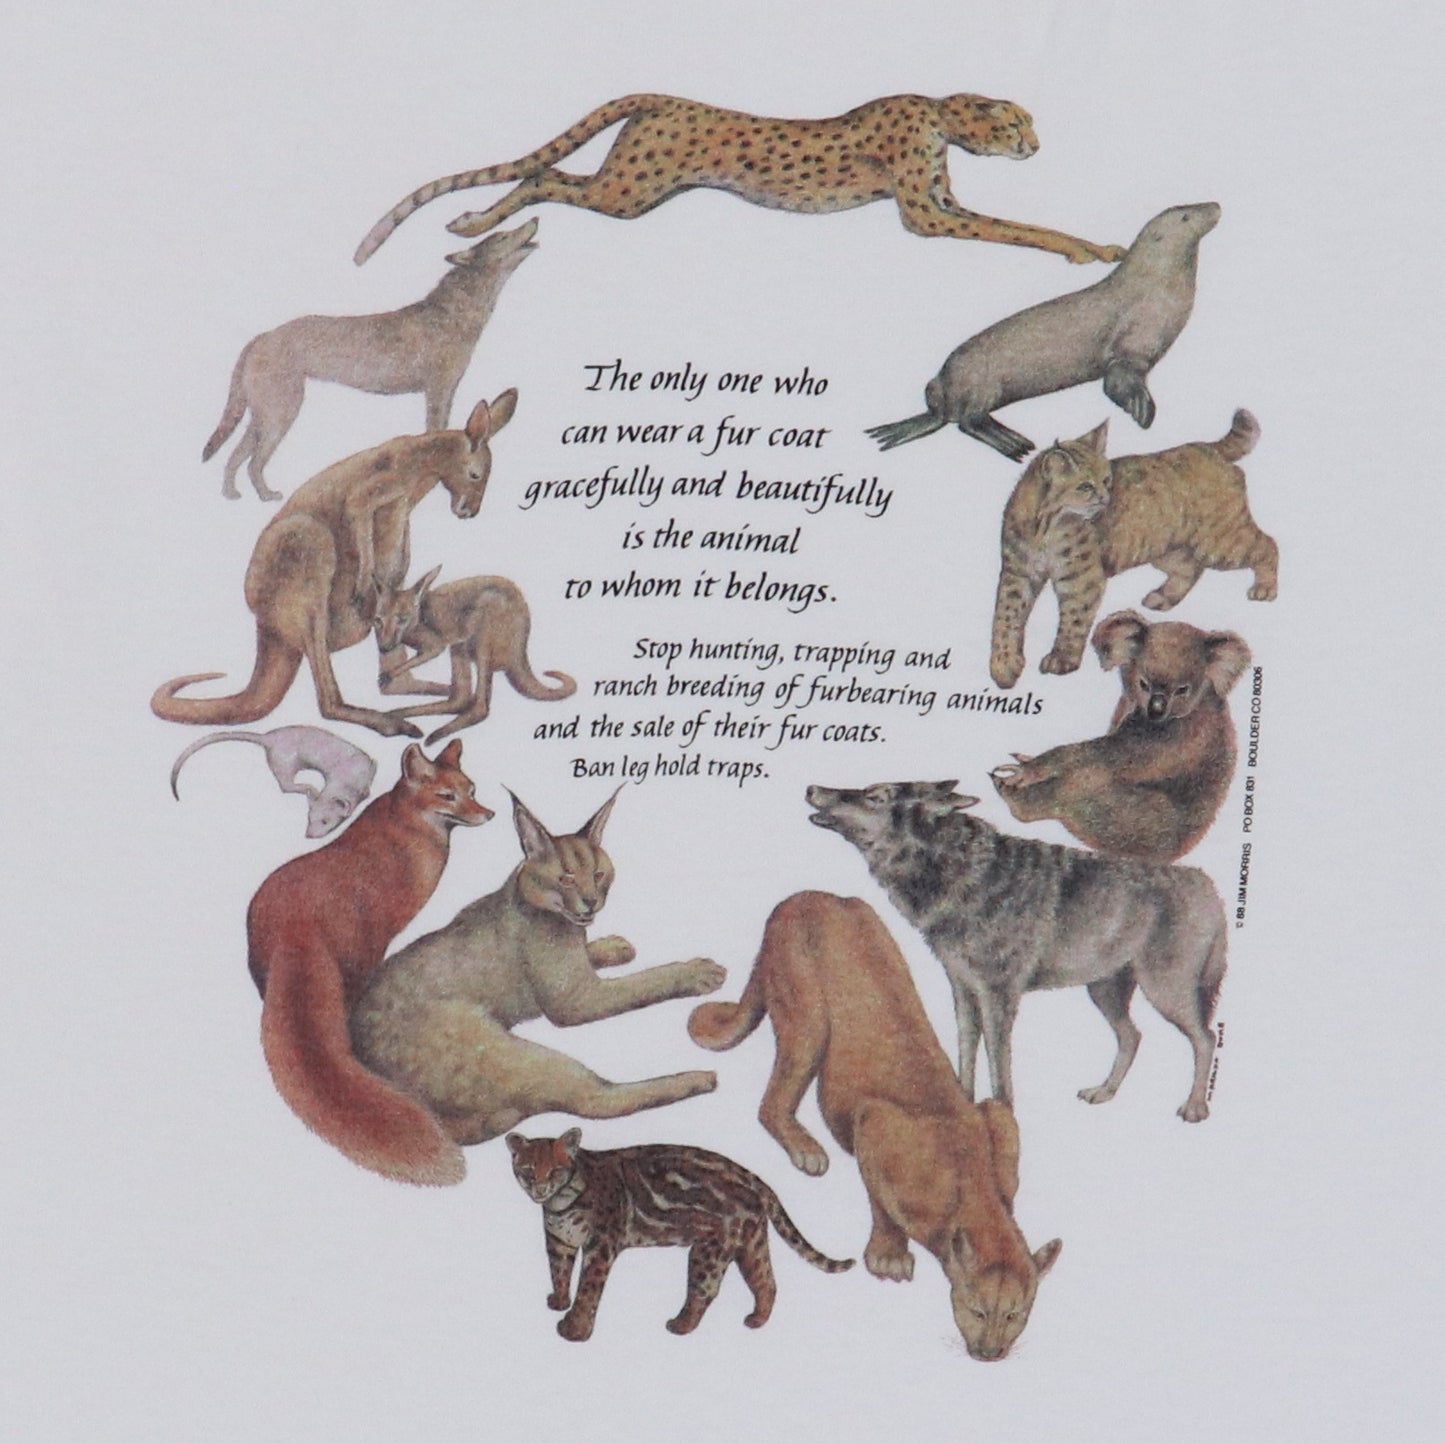 The only one who
can wear a fur coat
gracefully and beautifully
is the animal
to whom it belongs.
Stop hunting, trapping and
ranch breeding of furbearing animals
and the sale of their fur coats.
Ban leg hold traps.
© 88 JIM MORRIS PO BOX 831 BOULDER CO 80306